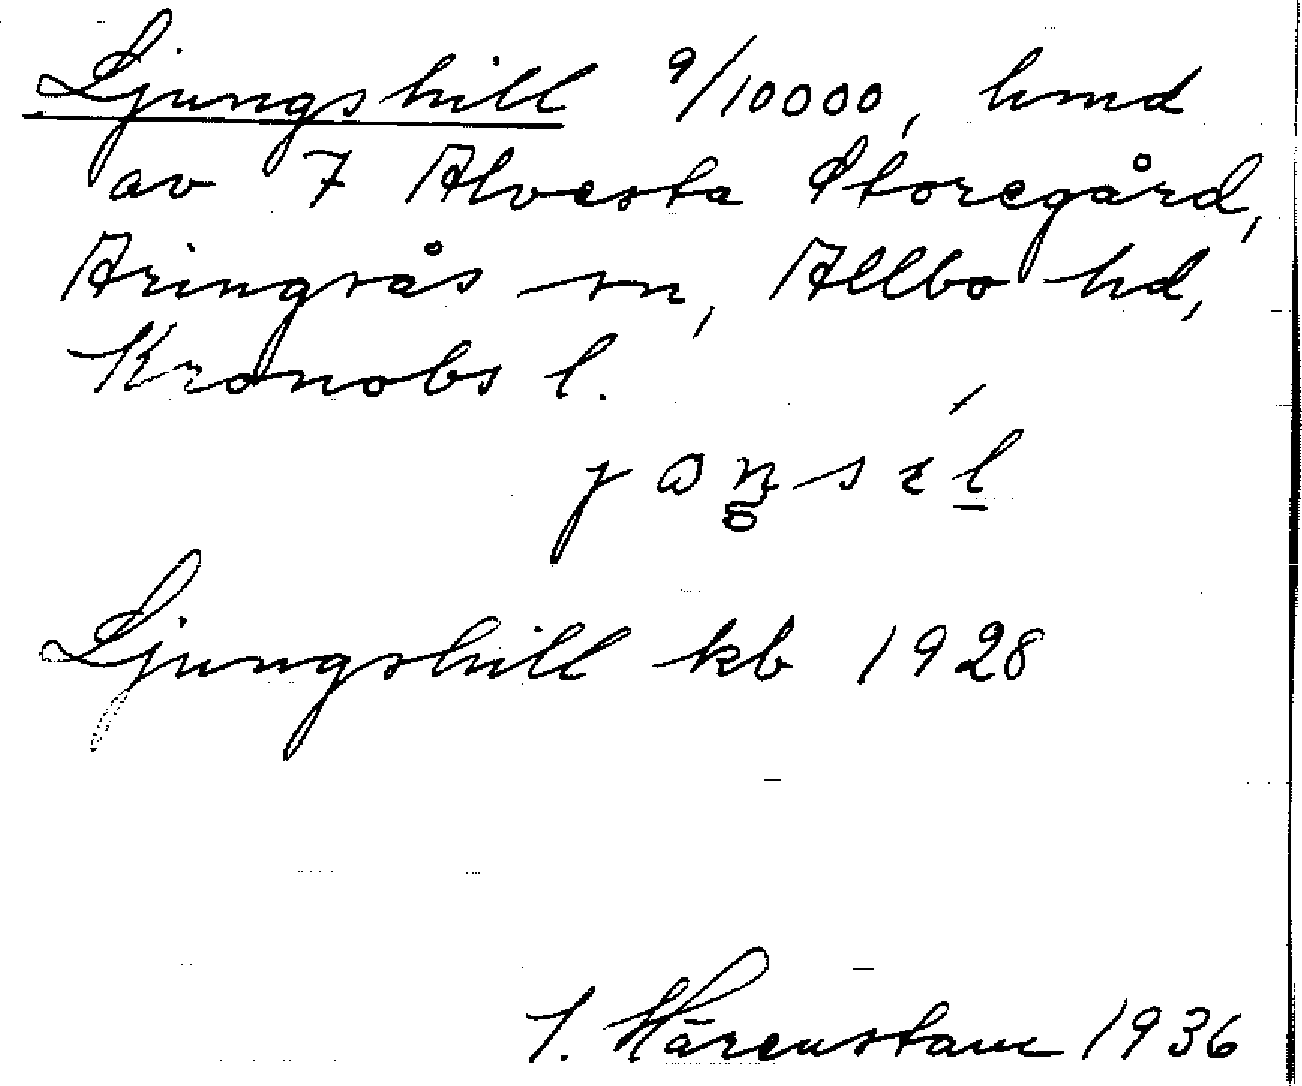 Ljungshill 9/10000, hmd
av 7 Alvesta Storegård,
Aringsås sn, Allbo hd,
Kronobs l.
Ljungshill kb 1928
Härenstam 1936